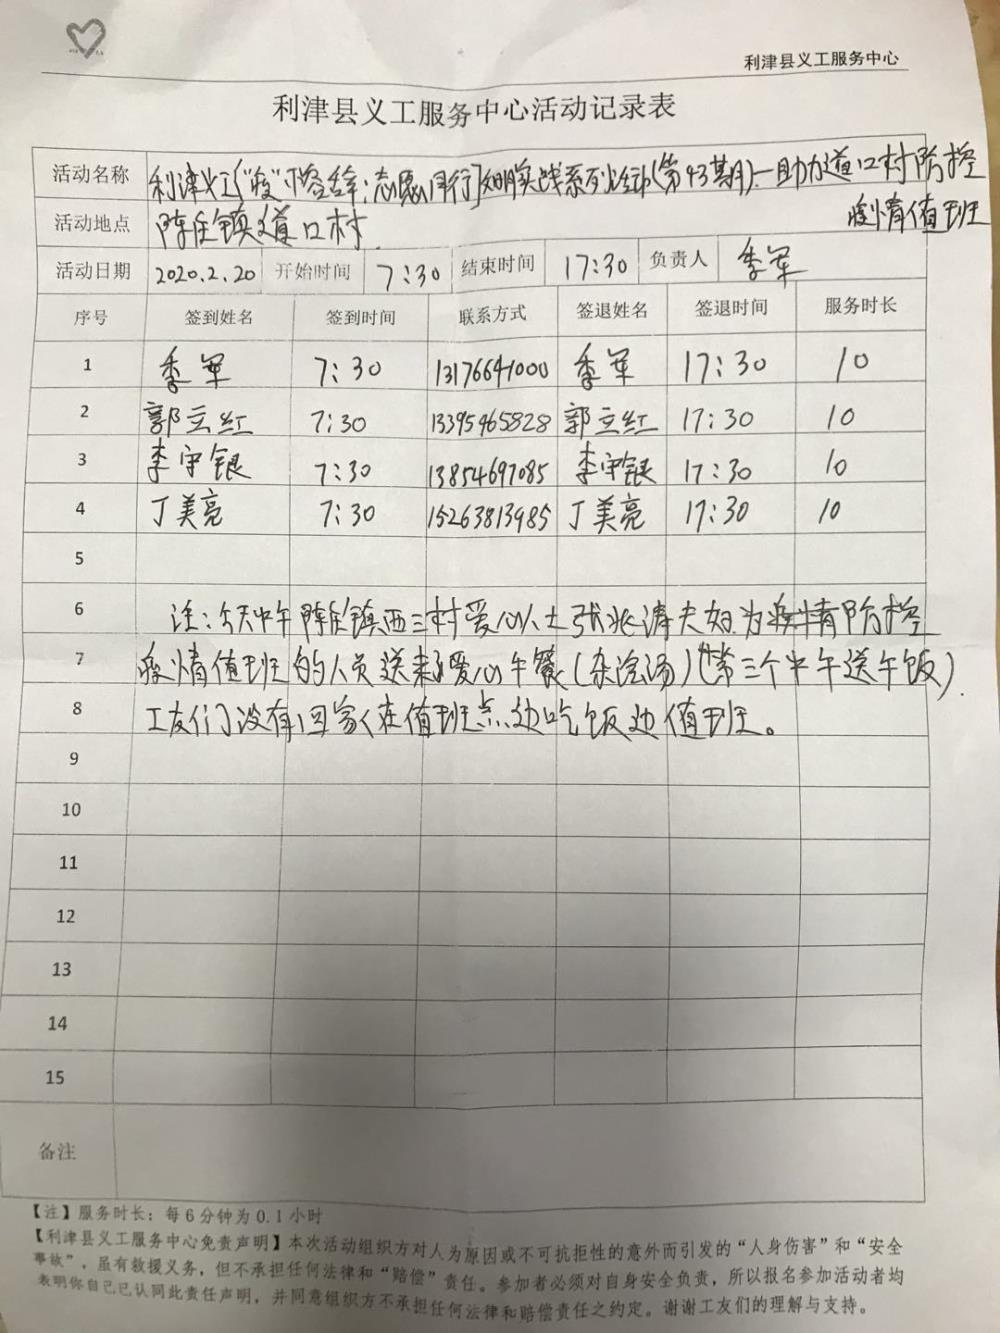 利津县义工服务中心
利津县义工服务中心活动记录表
活动名称 利津义工“疫”不容辞;志愿同行 实战系列活动(第43期)—助力道口村防控
疫情值班
活动地点 陈庄镇道口村
活动日期 2020.2.20 开始时间 7:30 结束时间 17:30 负责人 季军
序号 签到姓名 签到时间 联系方式 签退姓名 签退时间 服务时长
1 季军 7:30 13176641000 季军 17:30 10
2 郭立红 7:30 13395465828 郭立红 17:30 10
3 李守银 7:30 13854697085 李守银 17:30 10
4 丁美亮 7:30 15263813985 丁美亮 17:30 10
5
6 注:今天中午陈庄镇西三村爱心人士张兆涛夫妇为疫情防控
7 疫情值班的人员送来了爱心午餐(杂烩汤)(第三个中午送午饭)
8 工友们没有回家在值班点边吃饭边值班。
9
10
11
12
13
14
15
备注
【注】服务时长:每6分钟为0.1小时
【利津县义工服务中心免责声明】本次活动组织方对人为原因或不可抗拒性的意外而引发的“人身伤害”和“安全
事故”,虽有救援义务,但不承担任何法律和“赔偿”责任。参加者必须对自身安全负责,所以报名参加活动者均
表明你自己已认同此责任声明,并同意组织方不承担任何法律和赔偿责任之约定。谢谢工友们的理解与支持。